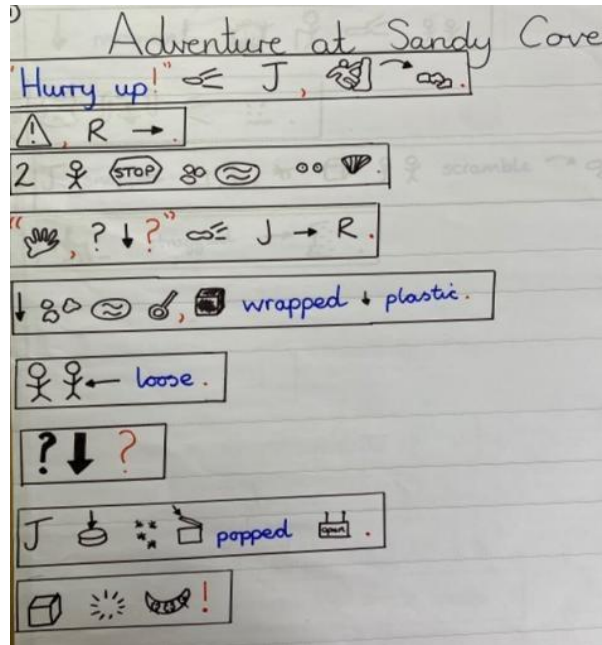 Adventure at Sandy Cove
"Hurry up!" J, .
, R → .
2 STOP .
" , ? ↓ ?" J → R .
↓ , wrapped ↓ plastic.
← loose.
? ↓ ?
J popped open .
!